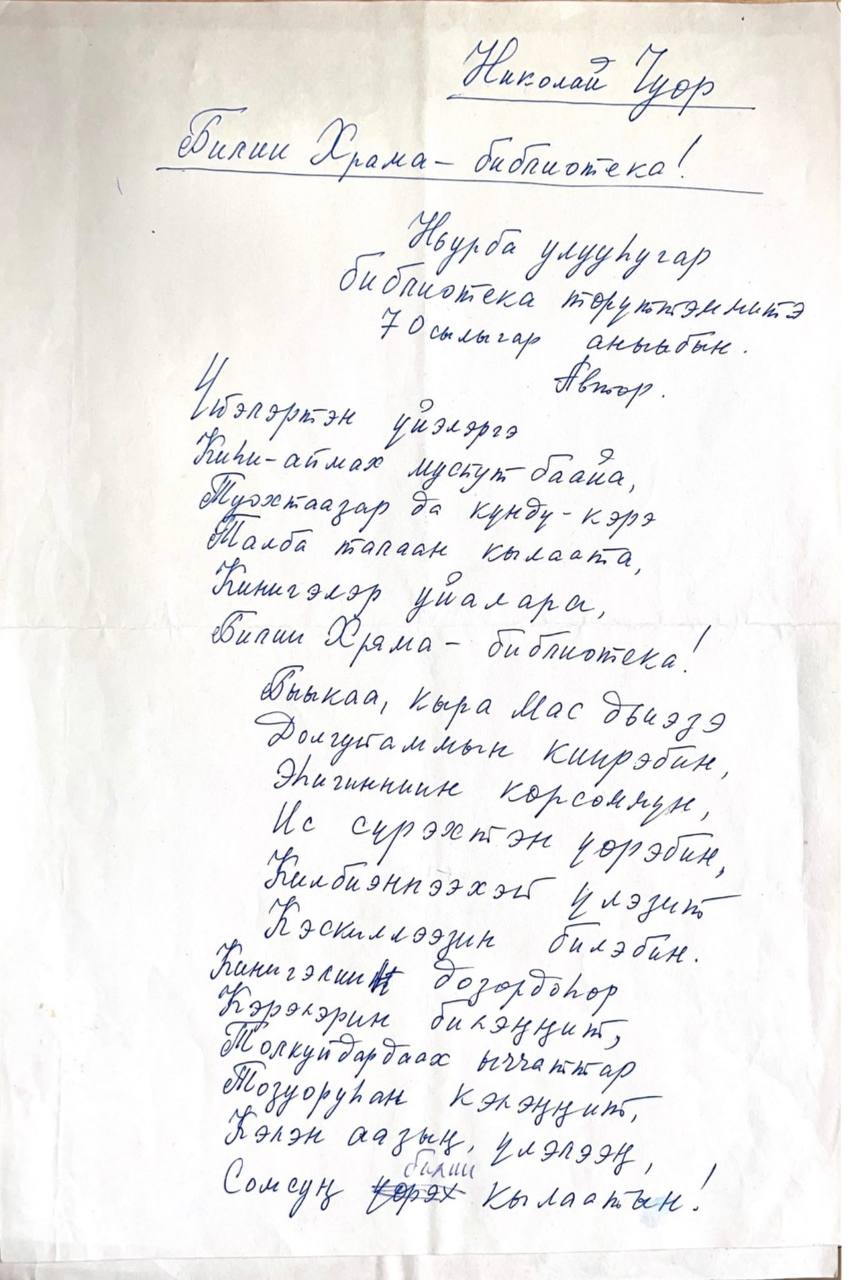 Николай Чуор
Билии Храма – библиотека!
Ньурба улууһугар
библиотека төрүттэммитэ
70 сылыгар аныыбын.
Автор.
Үйэлэртэн үйэлэргэ
Киһи-аймах муспут баайа,
Туохтааҕар да күндү-кэрэ
Талба талаан кылаата,
Кинигэлэр уйалара,
Билии Храма – библиотека!
Быыкаа, кыра мас дьиэҕэ
Долгуйаммын киирэбин,
Эһигиннин көрсөммүн,
Ис сүрэхтэн үөрэбин,
Килбиэннээхэй үлэҕит
Кэскиллээҕин билэбин.
Кинигэлиин доҕордоһор
Кэрэлэрин билэҥҥит,
Толкуйдардаах ыччаттар
Тоҕуоруһан кэлэҥҥит,
Кэлэн ааҕыҥ, үлэлээҥ,
Сомсуҥ билии кылаатын!